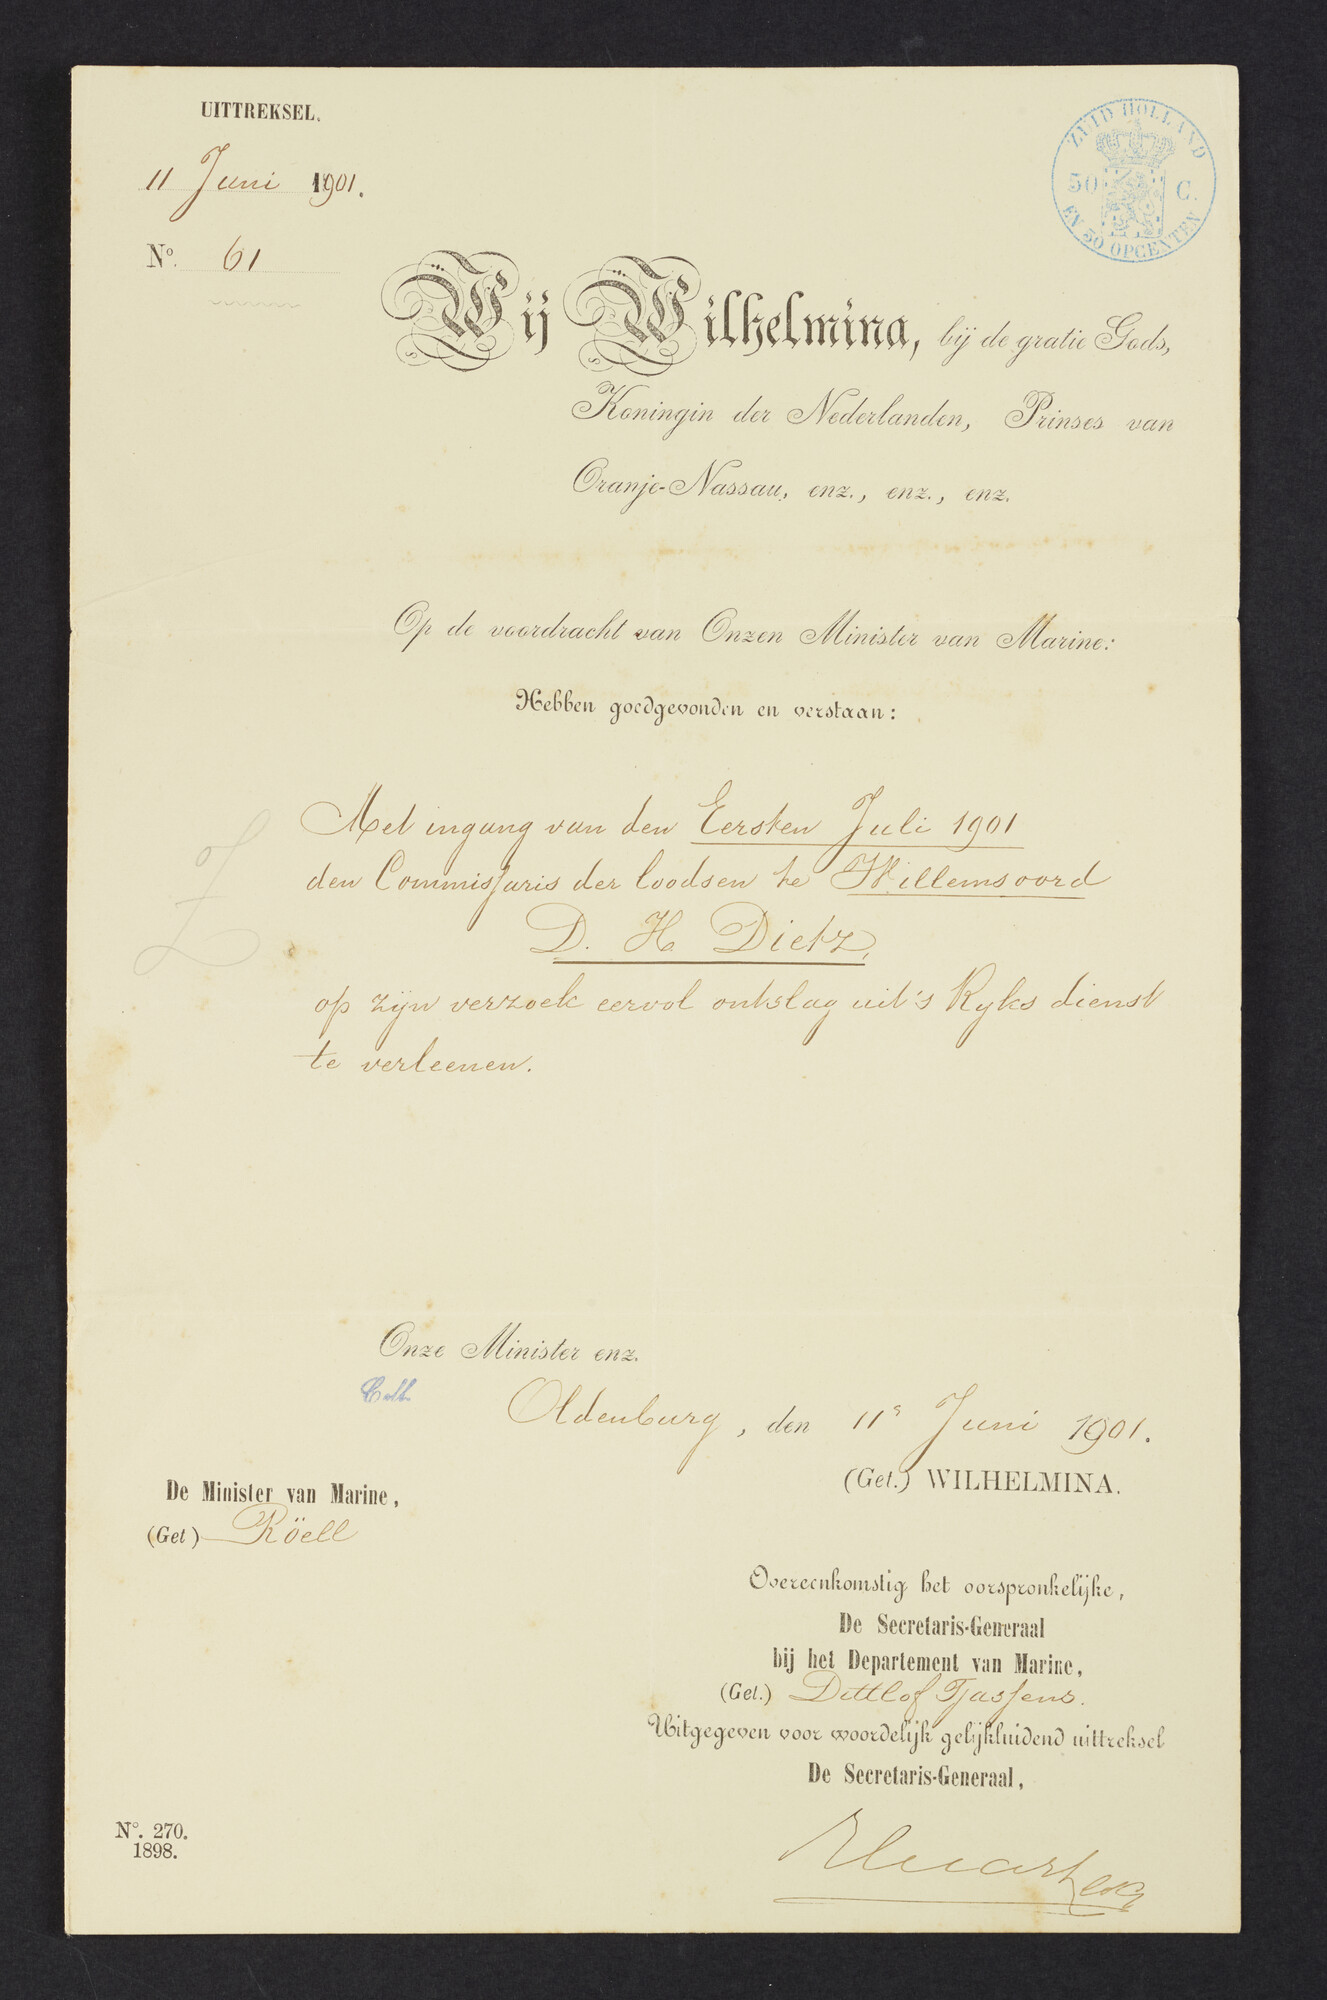 UITTREKSEL.
11 Juni 1901.
No. 61
ZUID HOLLAND
50 C.
EN 50 OPCENTEN
Wij Wilhelmina, bij de gratie Gods,
Koningin der Nederlanden, Prinses van
Oranje-Nassau, enz., enz., enz.
Op de voordracht van Onzen Minister van Marine:
Hebben goedgevonden en verstaan:
Met ingang van den Eersten Juli 1901
den Commissaris der loodsen te Willemsoord
D. H. Dietz,
op zijn verzoek eervol ontslag uit 's Ryks dienst
te verleenen.
Onze Minister enz.
Oldenburg, den 11e Juni 1901.
(Get.) WILHELMINA.
De Minister van Marine,
(Get) Röell
Overeenkomstig het oorspronkelijke,
De Secretaris-Generaal
bij het Departement van Marine,
(Get.) Dittlof Tjassens.
Uitgegeven voor woordelijk gelijkluidend uittreksel
De Secretaris-Generaal,
No. 270.
1898.